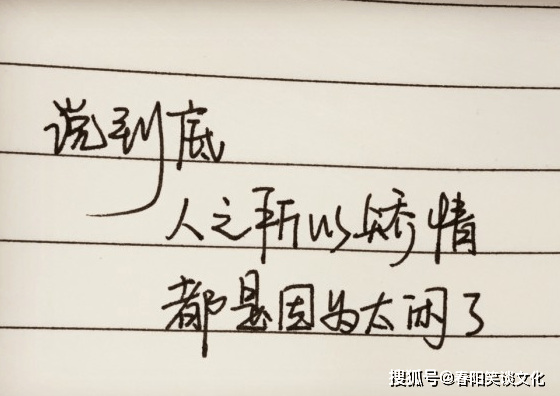 说到底
人之所以矫情
都是因为太闲了
搜狐号@春阳笑谈文化